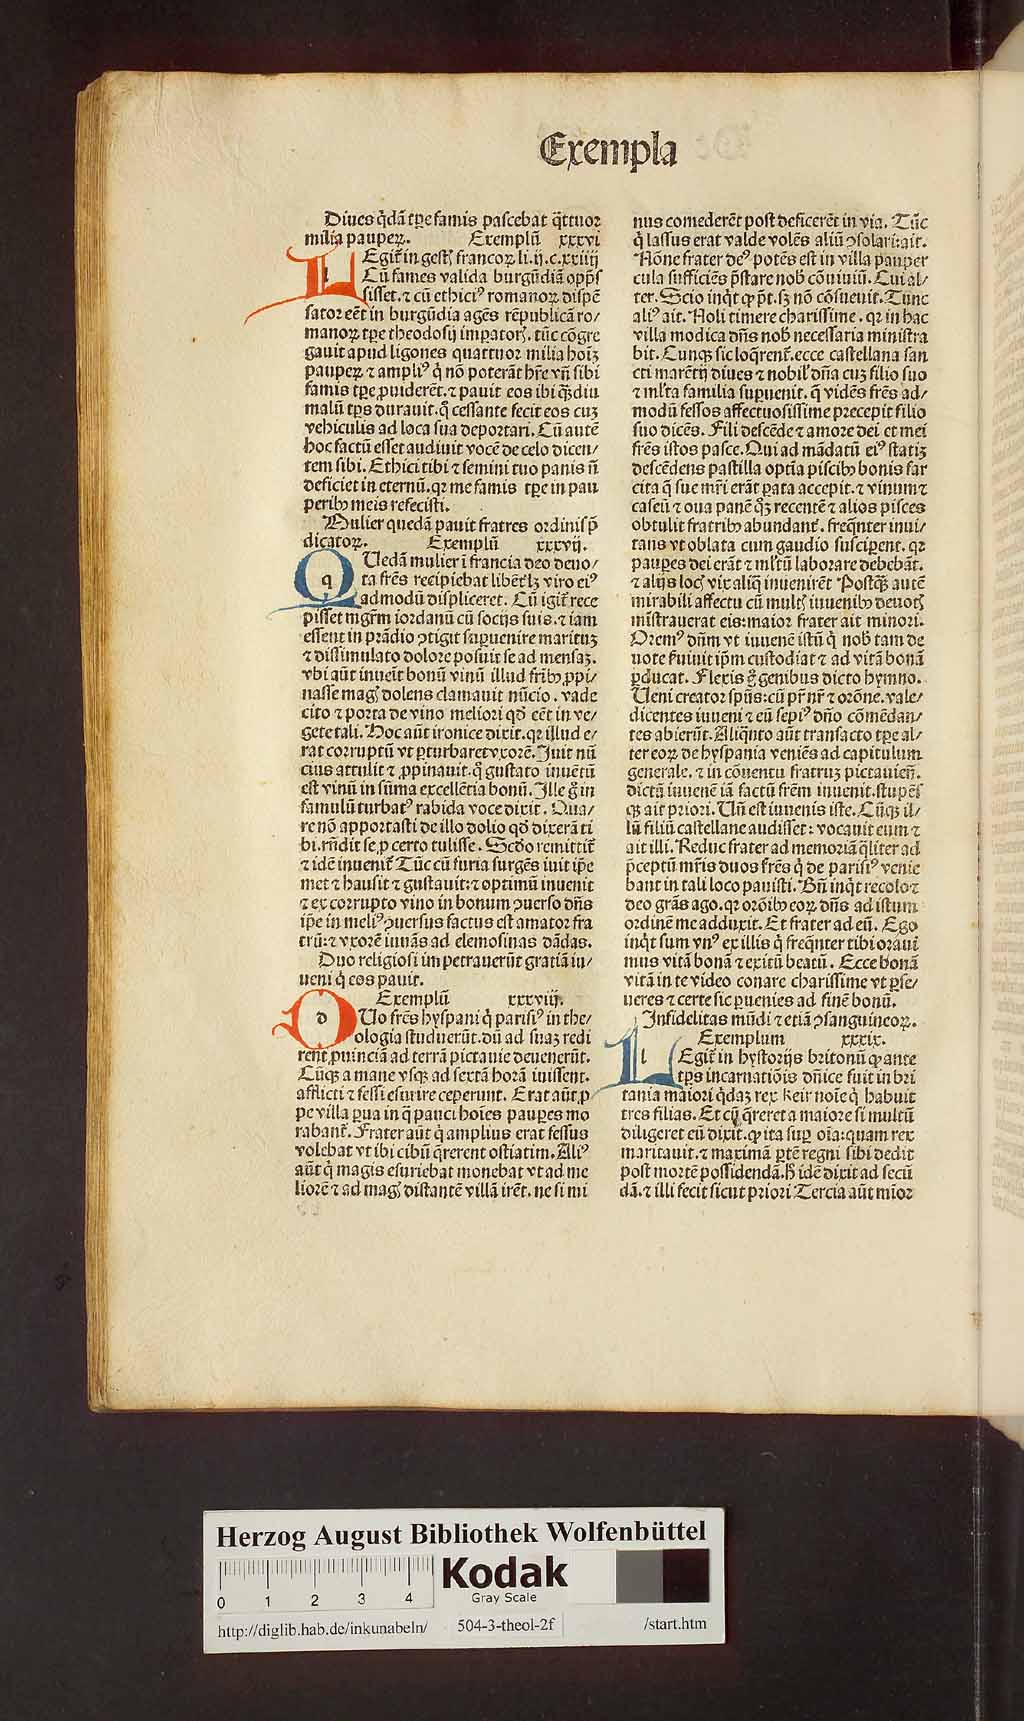 Exempla
Diues q̄dā tꝑe famis pascebat q̄ttuor
milia pauperꝝ. Exemplū xxxvi
LEgit᷑ in gestꝭ francoꝝ li. ij. c. xxiiij
Cū fames valida burgūdiā opp̄s
sisset. ⁊ cū ethiciꝰ romanoꝝ dispē
sator eēt in burgūdia agēs rēpublicā ro/
manoꝝ tꝑe theodosij impatorꝭ. tūc cōgre
gauit apud ligones quattuor milia hoīꝫ
pauperꝝ ⁊ ampliꝰ q̇ nō poterāt hr̄e vn̄ sibi
famis tꝑe ꝓuiderēt. ⁊ pauit eos ibi q̄ꝫdiu
malū tp̄s durauit. q̊ cessante fecit eos cuꝫ
vehiculis ad loca sua deportari. Cū autē
hoc factū esset audiuit vocē de celo dicen/
tem sibi. Ethici tibi ⁊ semini tuo panis n̄
deficiet in eternū. qꝛ me famis tꝑe in pau
peribꝰ meis refecisti.
Mulier quedā pauit fratres ordinis p̄
dicatoꝝ. Exemplū xxxvij.
QUedā mulier ī francia deo deuo/
ta frēs recipiebat libēt᷑ lꝫ viro eiꝰ
admodū displiceret. Cū igit᷑ rece
pisset mgr̄m iordanū cū socijs suis. ⁊ iam
essent in prādio ꝯtigit supuenire marituꝫ
⁊ dissimulato dolore posuit se ad mensaꝫ.
vbi aūt inueīt bonū vinū illud fr̄ibꝰ ꝓpi/
nasse magꝭ dolens clamauit nūcio. vade
cito ⁊ porta de vino meliori qḋ eēt in ve/
gete tali. Hoc aūt ironice dixit. qꝛ illud e/
rat corruptū vt ꝑturbaret vxorē. Iuit nū
cius attulit ⁊ ꝓpinauit. q̊ gustato inuētū
est vinū in sūma excellētia bonū. Ille g̊ in
famulū turbatꝰ rabida voce dixit. Qua/
re nō apportasti de illo dolio qḋ dixerā ti
bi. rn̄dit se ꝓ certo tulisse. Scḋo remittit᷑
⁊ idē inuenit᷑ Tūc cū furia surgēs iuit ip̄e
met ⁊ hausit ⁊ gustauit: ⁊ optimū inuenit
⁊ ex corrupto vino in bonum ꝯuerso dn̄s
ip̄e in meliꝰ ꝯuersus factus est amator fra
trū: ⁊ vxorē iuuās ad elemosinas dādas.
Duo religiosi impetrauerūt gratiā iu/
ueni q̇ eos pauit.
Exemplū xxxviij.
DUo frēs hyspani q̇ parisiꝰ in the/
ologia studuerūt. dū ad suaꝫ redi
rent ꝓuinciā ad terrā pictauie deuenerūt.
Cūqꝫ a mane vsqꝫ ad sextā horā iuissent.
afflicti ⁊ fessi esurire ceperunt. Erat aūt ꝓ
pe villa ꝑua in q̄ pauci hoīes paupes mo
rabant᷑. Frater aūt q̇ amplius erat fessus
volebat vt ibi cibū q̄rerent ostiatim. Aliꝰ
aūt q̇ magis esuriebat monebat vt ad me
liorē ⁊ ad magꝭ distantē villā irēt. ne si mi
nus comederēt post deficerēt in via. Tūc
q̇ lassus erat valde volēs aliū ꝯsolari: ait.
Nōne frater deꝰ potēs est in villa pauper
cula sufficiēs p̄stare nob̄ cōuiuiū. Cui al/
ter. Scio inq̇t ꝙ pt̄. sꝫ nō cōsueuit. Tunc
aliꝰ ait. Noli timere charissime. qꝛ in hac
villa modica dn̄s nob̄ necessaria ministra
bit. Cunqꝫ sic loq̄rent᷑. ecce castellana san
cti marētij diues ⁊ nobil̓ dn̄a cuꝫ filio suo
⁊ ml̓ta familia supuenit. q̄ vidēs frēs ad/
modū fessos affectuosissime precepit filio
suo dicēs. Fili descēde ⁊ amore dei et mei
frēs istos pasce. Qui ad mādatū eiꝰ statiꝫ
descēdens pastilla optīa piscibꝰ bonis far
cita q̄ sue mr̄i erāt ꝑata accepit. ⁊ vinum ⁊
caseū ⁊ oua panē q̊ꝫ recentē ⁊ alios pisces
obtulit fratribꝰ abundant᷑. freq̄nter inui/
tans vt oblata cum gaudio susciperent. qꝛ
paupes dei erāt ⁊ ml̓tū laborare debebāt.
⁊ alijs locꝭ vix aliq̇ inuenirēt Postqꝫ autē
mirabili affectu cū multꝭ iuuenibꝰ deuotꝭ
mīstrauerat eis: maior frater ait minori.
Oremꝰ dn̄m vt iuuenē istū q̇ nob̄ tam de
uote ẜuiuit ip̄m custodiat ⁊ ad vitā bonā
ꝑducat. Flexis g̊ genibus dicto hymno.
Ueni creator sp̄ūs: cū pr̄ nr̄ ⁊ orōne. vale/
dicentes iuueni ⁊ eū sepiꝰ dn̄o cōmēdan/
tes abierūt. Aliq̄nto aūt transacto tꝑe al/
ter eoꝝ de hyspania veniēs ad capitulum
generale. ⁊ in cōuentu fratruꝫ pictauień.
dictū iuuenē iā factū frēm inuenit. stupēs
qꝫ ait priori. Un̄ est iuuenis iste. Cūqꝫ il/
lū filiū castellane audisset: vocauit eum ⁊
ait illi. Reduc frater ad memoriā q̄liter ad
p̄ceptū mr̄is duos frēs q̇ de parisiꝰ venie
bant in tali loco pauisti. Bn̄ inq̇t recolo ⁊
deo grās ago. qꝛ orōibꝰ eoꝝ dn̄s ad istum
ordinē me adduxit. Et frater ad eū. Ego
inq̇t sum vnꝰ ex illis q̇ freq̄nter tibi oraui
mus vitā bonā ⁊ exitū beatū. Ecce bonā
vitā in te video conare charissime vt ꝑse/
ueres ⁊ certe sic ꝑuenies ad finē bonū.
Infidelitas mūdi ⁊ etiā ꝯsanguineoꝝ.
Exemplum xxxix.
LEgit᷑ in hystorijs britonū ꝙ ante
tp̄s incarnatiōis dn̄ice fuit in bri
tania maiori q̇daꝫ rex Leir noīe q̇ habuit
tres filias. Et cū q̄reret a maiore si multū
diligeret eū dixit. ꝙ ita sup oīa: quam rex
maritauit. ⁊ maximā ꝑtē regni sibi dedit
post mortē possidendā. H̄ idē dixit ad secū
dā. ⁊ illi fecit sicut priori Tercia aūt mīor
Herzog August Bibliothek Wolfenbüttel
0 1 2 3 4
Kodak
Gray Scale
http://diglib.hab.de/inkunabeln/ 504-3-theol-2f /start.htm